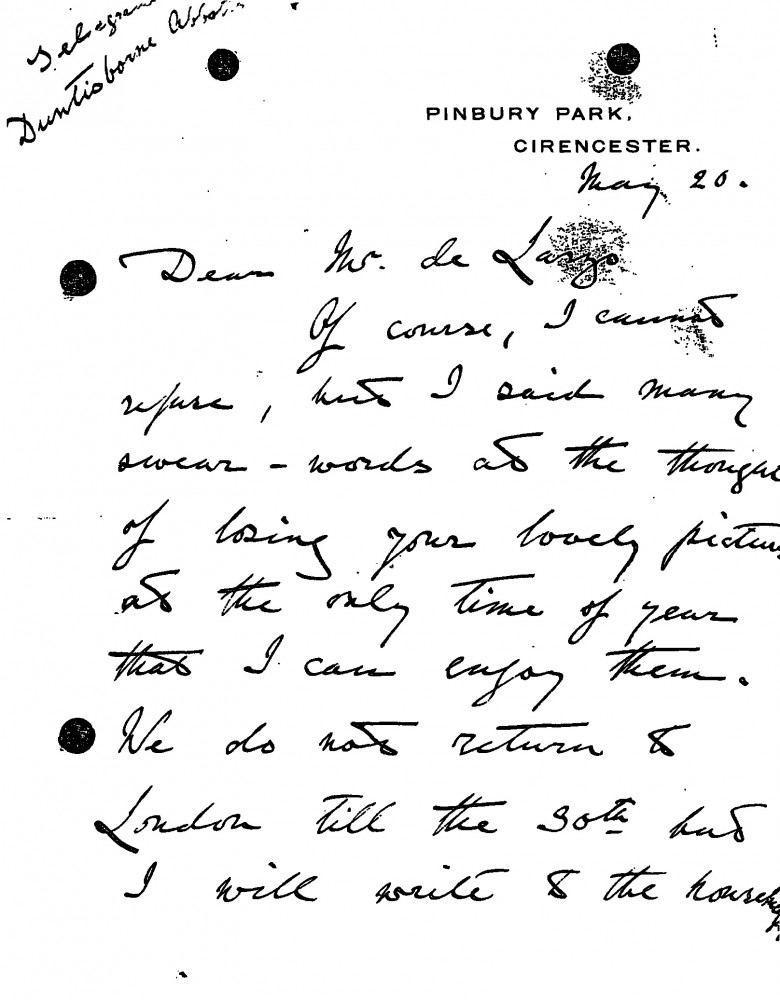 Telegrams
Duntisborne Abbots
PINBURY PARK,
CIRENCESTER.
May 20.
Dear Mr. de Laszo
Of course, I cannot
refuse, but I said many
swear-words at the though
of losing your lovely pictur
at the only time of year
that I can enjoy them.
We do not return to
London till the 30th but
I will write to the